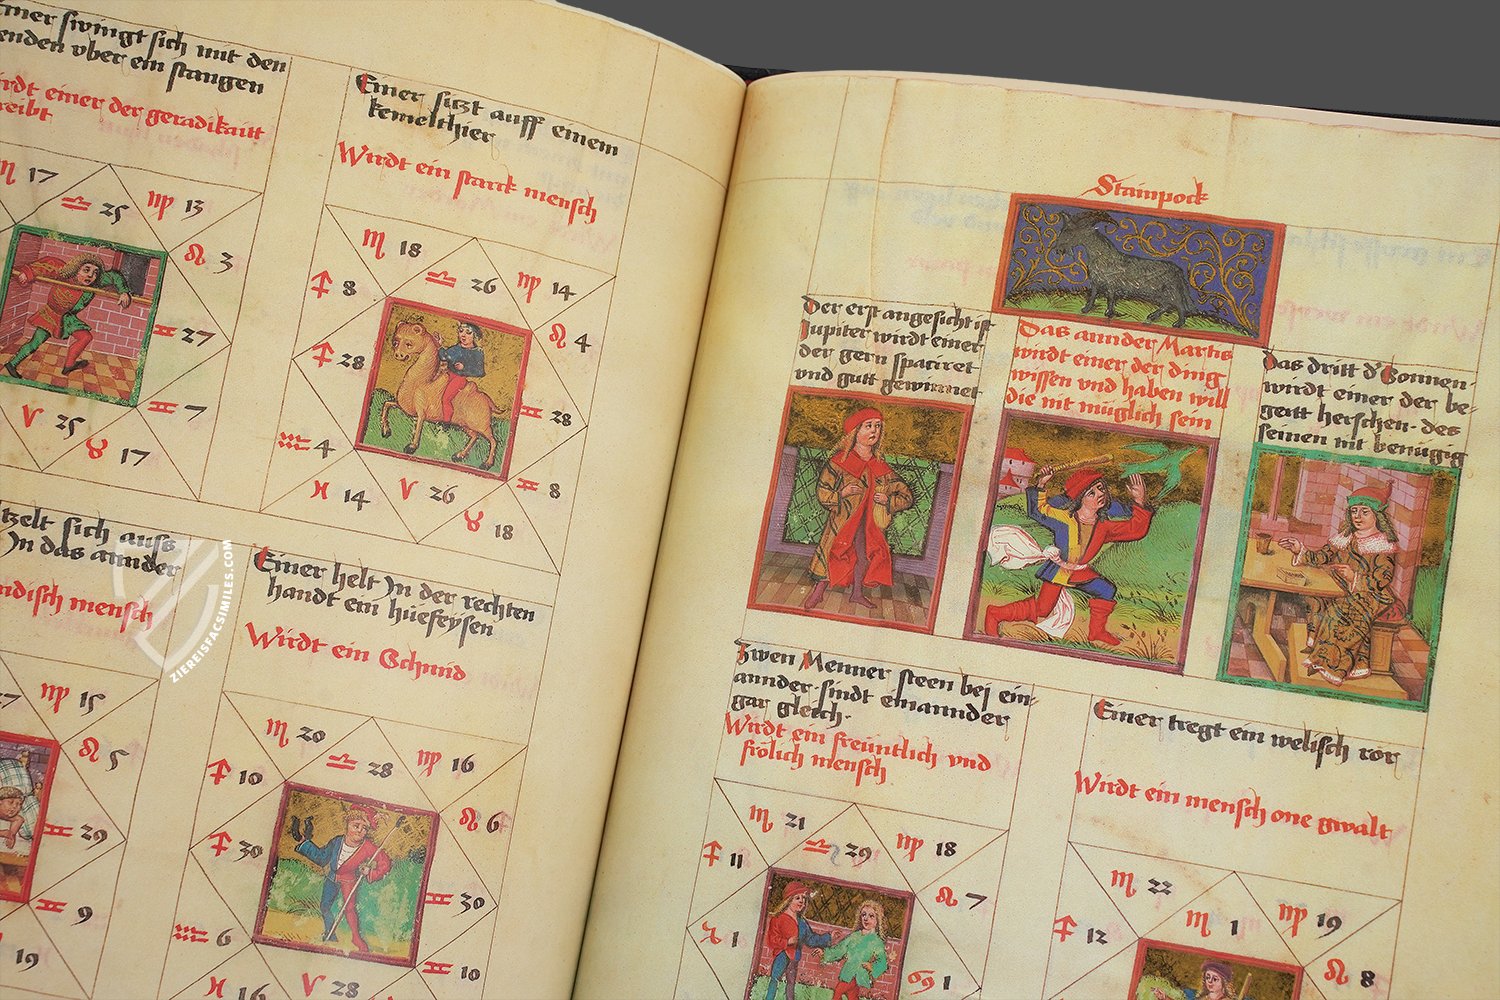 Einer swingt sich mit den
enden vber ein stangen
irdt einer der geradikaitt
treibt
♏ 17
♎ 25
♍ 13
♌ 3
♊ 27
♊ 7
♈ 25
♉ 17
Einer sitzt auff einem
kemelthier
Wirdt ein starck mensch
♏ 18
♎ 26
♍ 14
♐ 8
♌ 4
♐ 28
♊ 28
♒ 4
♊ 8
♓ 14
♈ 26
♉ 18
tzelt sich auss
In das annder
ndisch mensch
27
♍ 15
♌ 5
♊ 29
♊ 9
19
Einer helt In der rechten
handt ein huefeysen
Wirdt ein Schmid
♏ 20
♎ 28
♍ 16
♐ 10
♌ 6
♐ 30
♊ 30
♒ 6
♊ 10
♓ 16
♈ 28
Stainpock
Der erst angesicht ist
Jupiter wirdt einer
der gern spaciret
vnd gutt gewinnet
Das annder Martis
wirdt einer der ding
wissen vnd haben will
die nit müglich sein
Das dritt d' Sonnen·
wirdt einer der be-
gertt herschen· des
seinen nit benügig
Zwen Menner steen bej ein-
annder· sindt einannder
gar gleich·
Wirdt ein freüntlich vnd
frölich mensch
♏ 21
♎ 29
♍ 18
♐ 11
♌ 7
♑ 1
♋ 1
Einer tregt ein welisch ror
Wirdt ein mensch one gwalt
♏ 22
♏ 1
♍ 19
♐ 12
♌ 8
ZIEREISFACSIMILES.COM